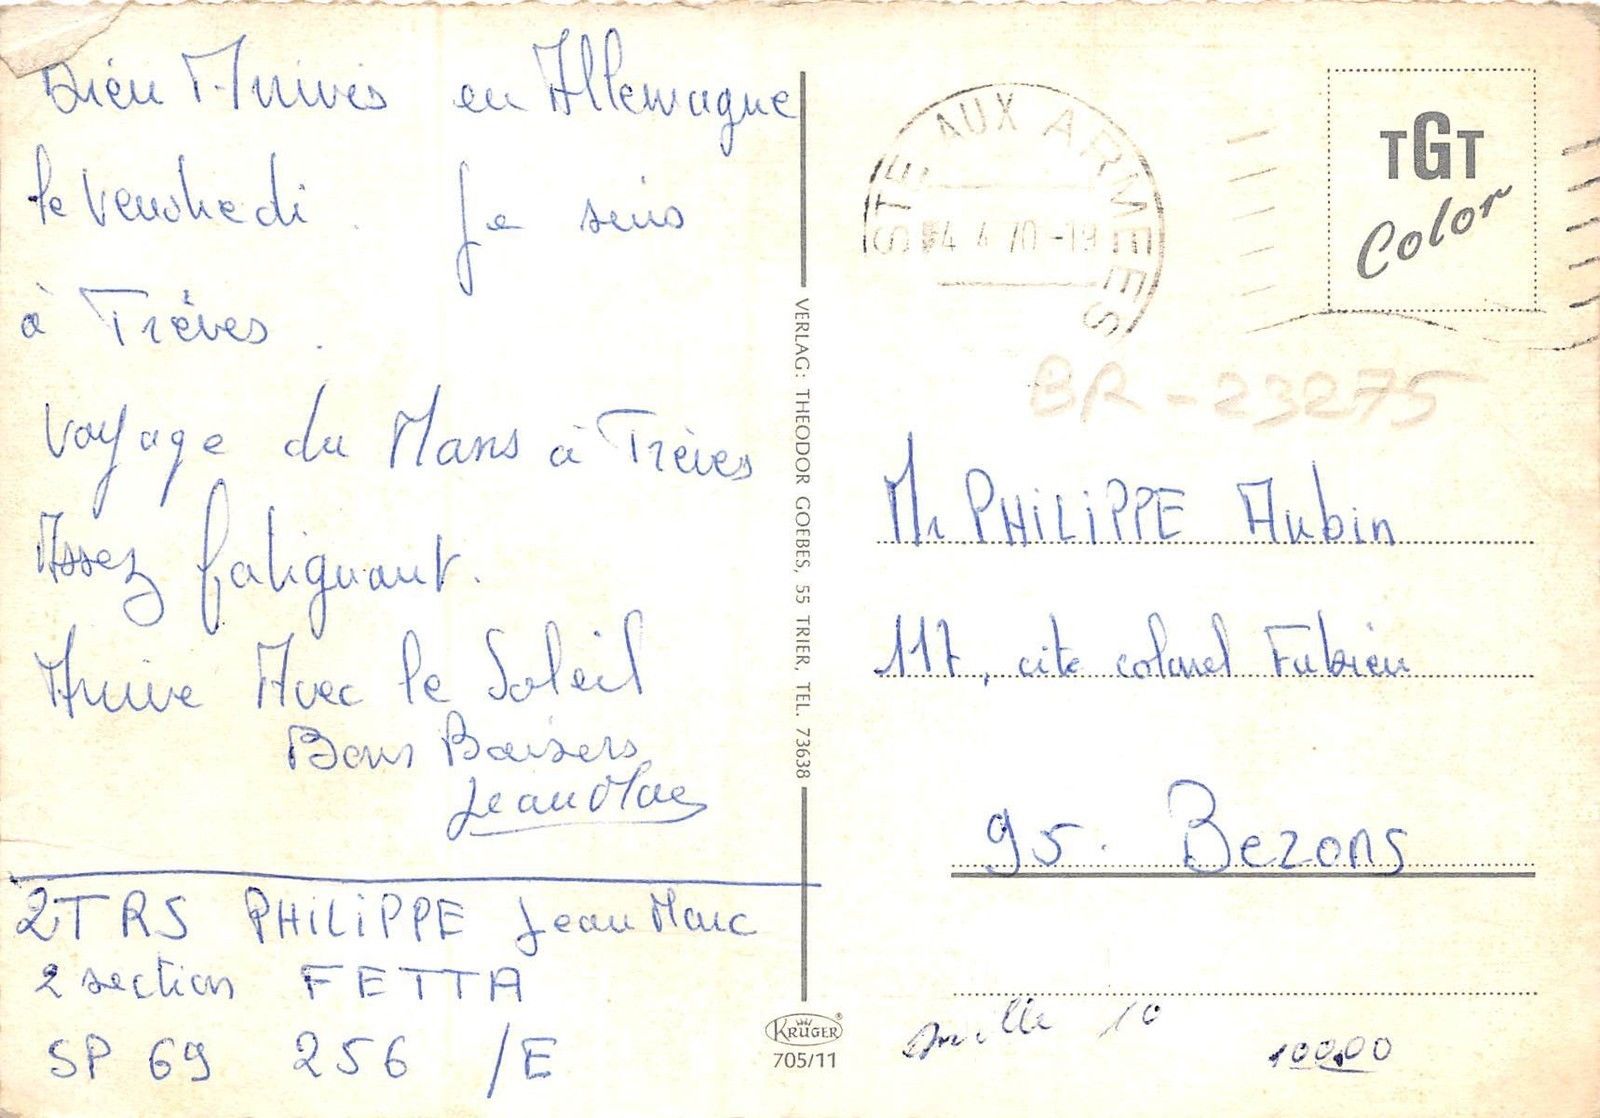 Bien Arrivés en Allemagne
le Vendredi. Je suis
à Trêves.
Voyage du Mans à Trèves
Assez fatiguant.
Arrive Avec le Soleil
Bons Baisers
Jean Marc
2TRS PHILIPPE Jean Marc
2 section FETTA
SP 69 256 /E
VERLAG: THEODOR GOEBES, 55 TRIER, TEL. 73638
KRÜGER
705/11
STE AUX ARMEES
4 70-19
TGT
Color
BR-23275
Mr PHILIPPE Aubin
117, cite colonel Fabien
95. Bezons
10
100,00